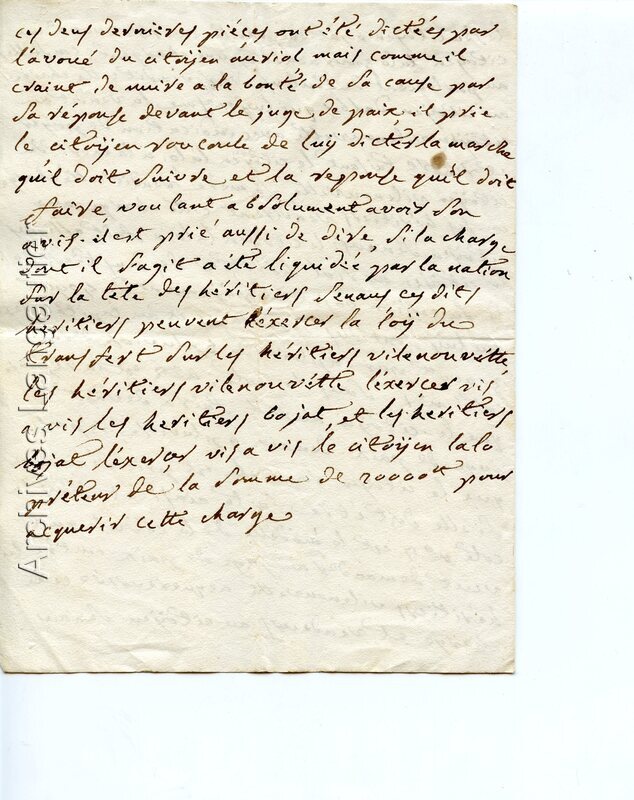 ces deus dernières piéces ont été dictées par
l'avoué du citoÿen auriol mais comme il
craint de nuire a la bonté de sa cause par
sa réponse devant le juge de paix il prie
le citoÿen roucoule de luÿ dicter la marche
qu'il doit suivre et la reponse qu'il doit
faire, voulant absolument avoir son
avis. il est prié aussi de dire, si la charge
dont il s'agit a été liquidée, par la nation
sur la téte des héritiers senaus ces dits
héritiers peuvent l'éxercer la loÿ du
transfert sur les héritiers vilenouvétte,
les héritiers vilenouvétte l'éxercer vis
a vis les heritiers bojat, et les heritiers
bojat l'éxercer vis a vis le citoÿen lalo
préteur de la somme de 20000tt pour
acquerir cette charge
Archives Languedoc